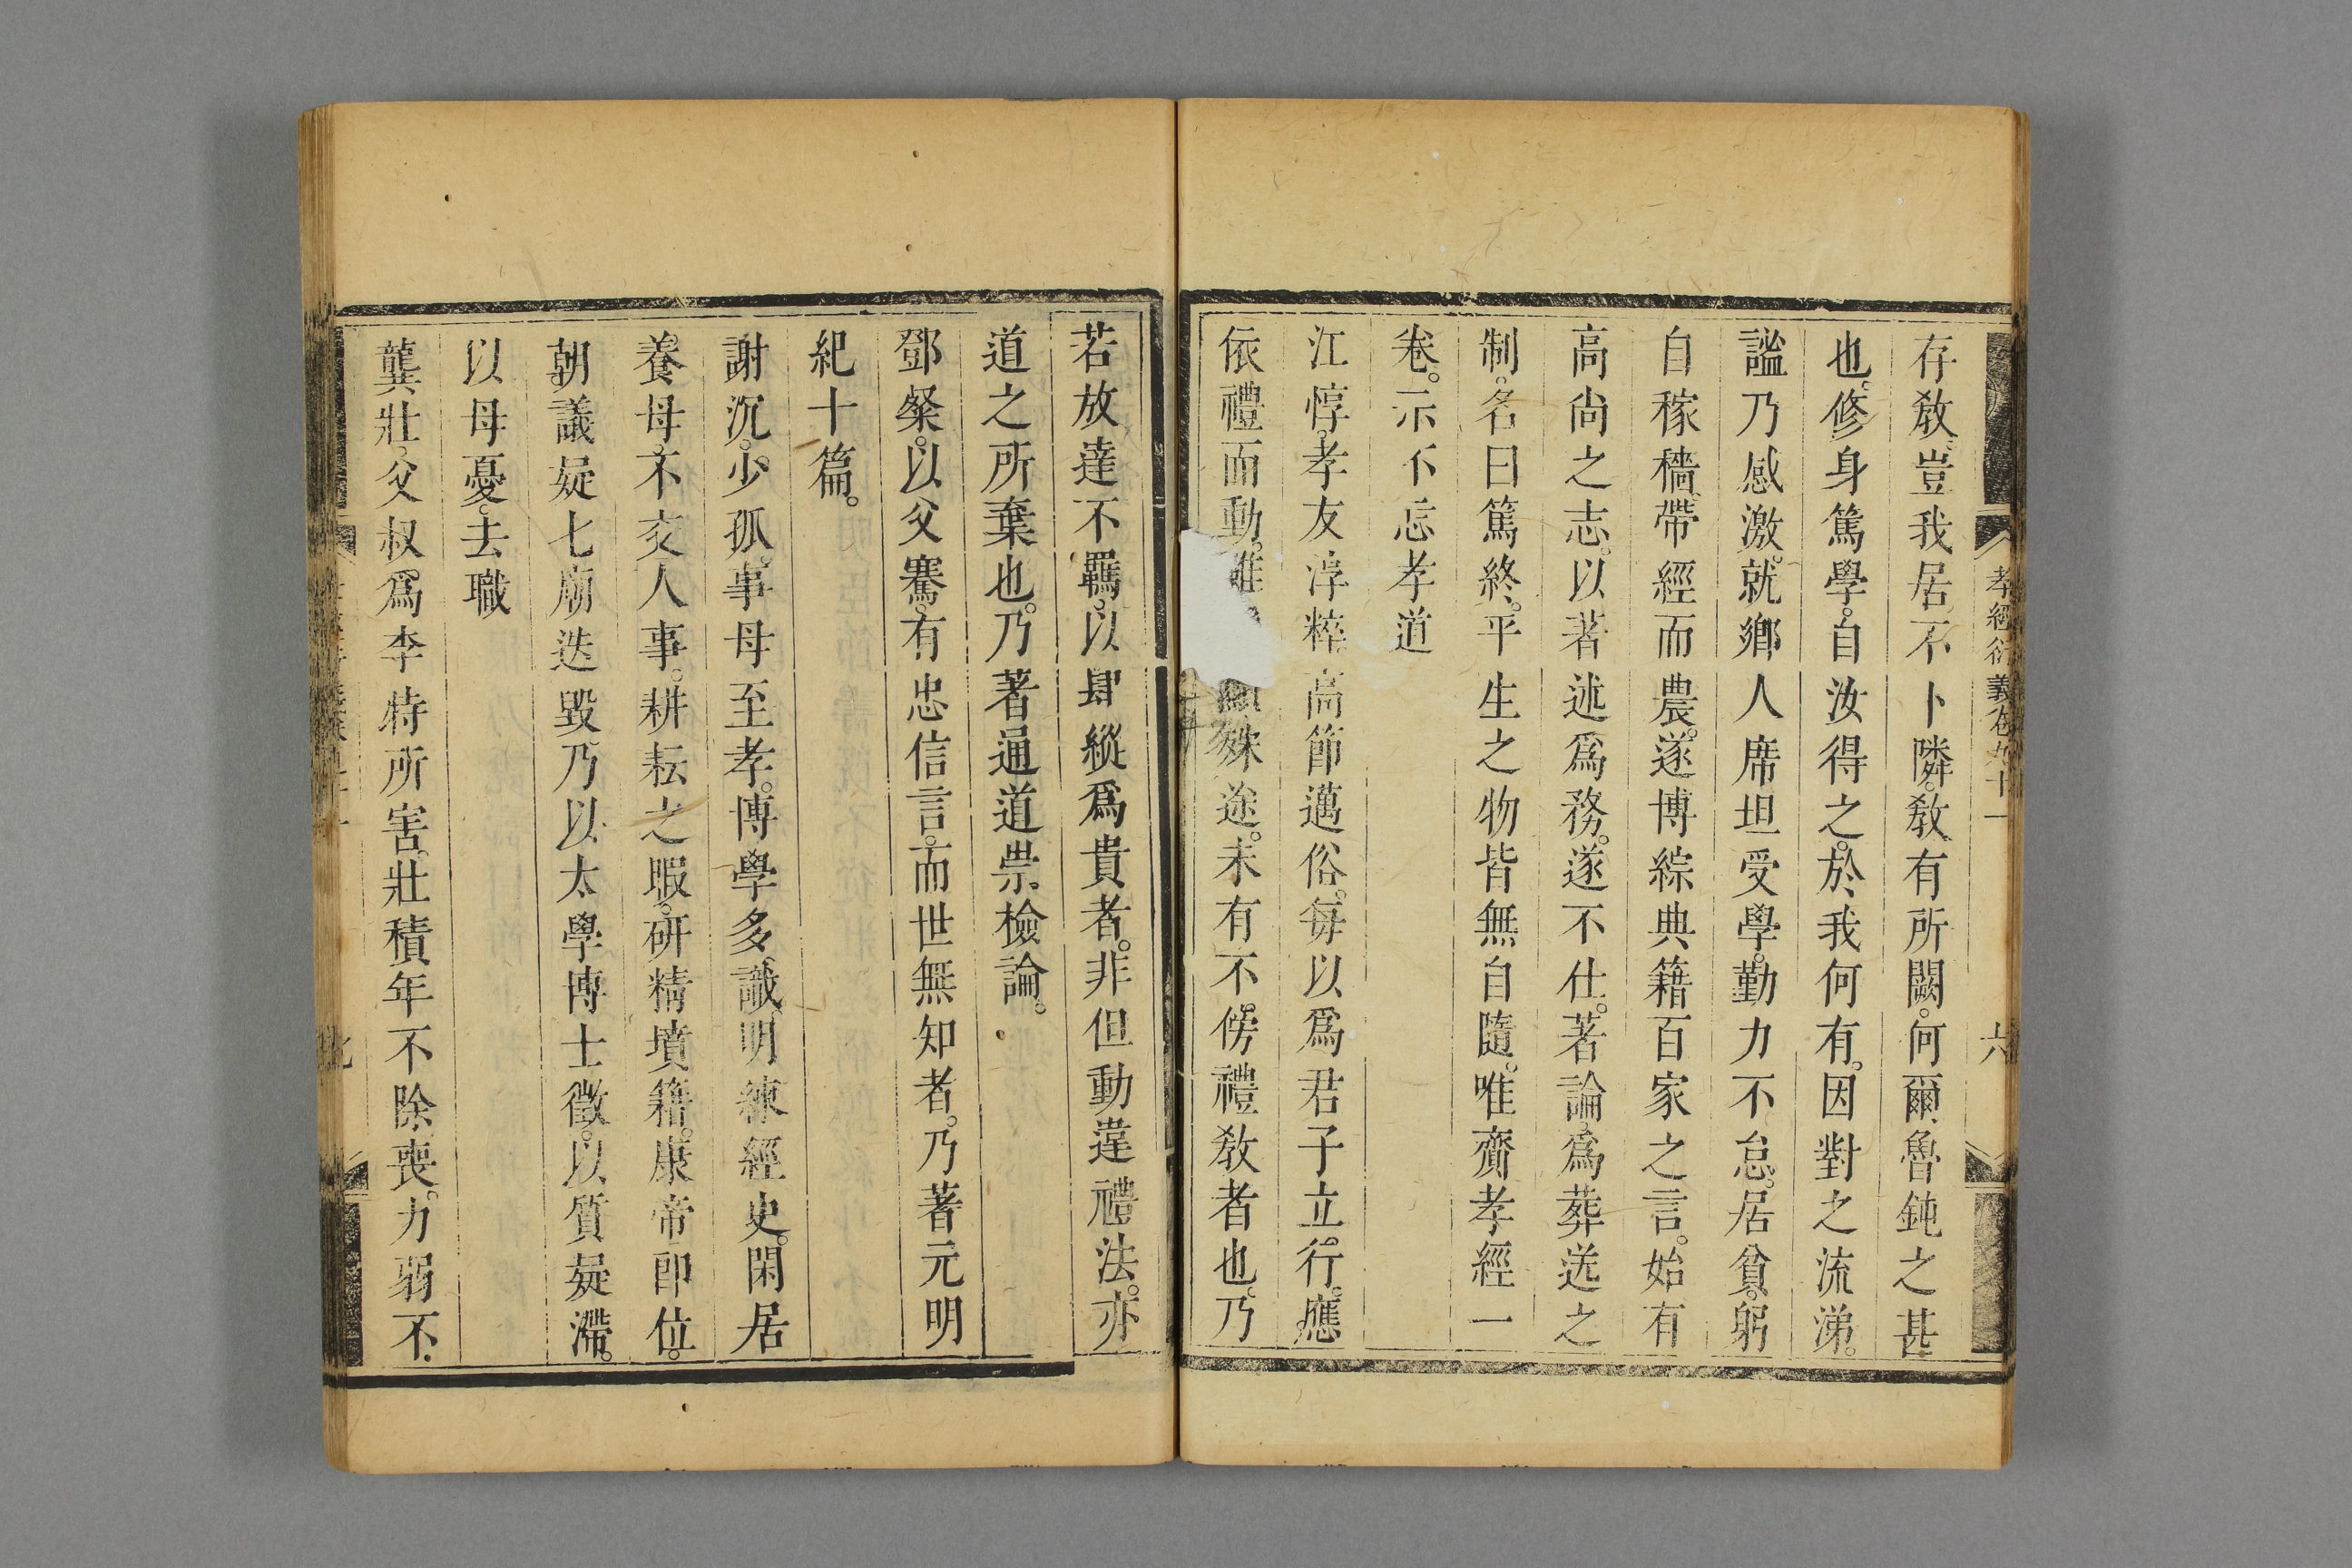 孝經衍義卷九十一
六
存敎豈我居不卜隣敎有所闕何爾魯鈍之甚
也修身篤學自汝得之於我何有因對之流涕
謐乃感激就鄉人席坦受學勤力不怠居貧躬
自稼穡帶經而農遂博綜典籍百家之言始有
高尚之志以著述爲務遂不仕著論爲葬送之
制名曰篤終平生之物皆無自隨唯齎孝經一
卷示不忘孝道
江惇孝友淳粹高節邁俗每以爲君子立行應
依禮而動雖殊途未有不傍禮敎者也乃
若放達不羈以肆縱爲貴者非但動違禮法亦
道之所棄也乃著通道崇檢論
鄧粲以父騫有忠信言而世無知者乃著元明
紀十篇
謝沉少孤事母至孝博學多識明練經史閑居
養母不交人事耕耘之暇研精墳籍康帝卽位
朝議疑七廟迭毀乃以太學博士徵以質疑滯
以母憂去職
龔壯父叔爲李特所害壯積年不除喪力弱不